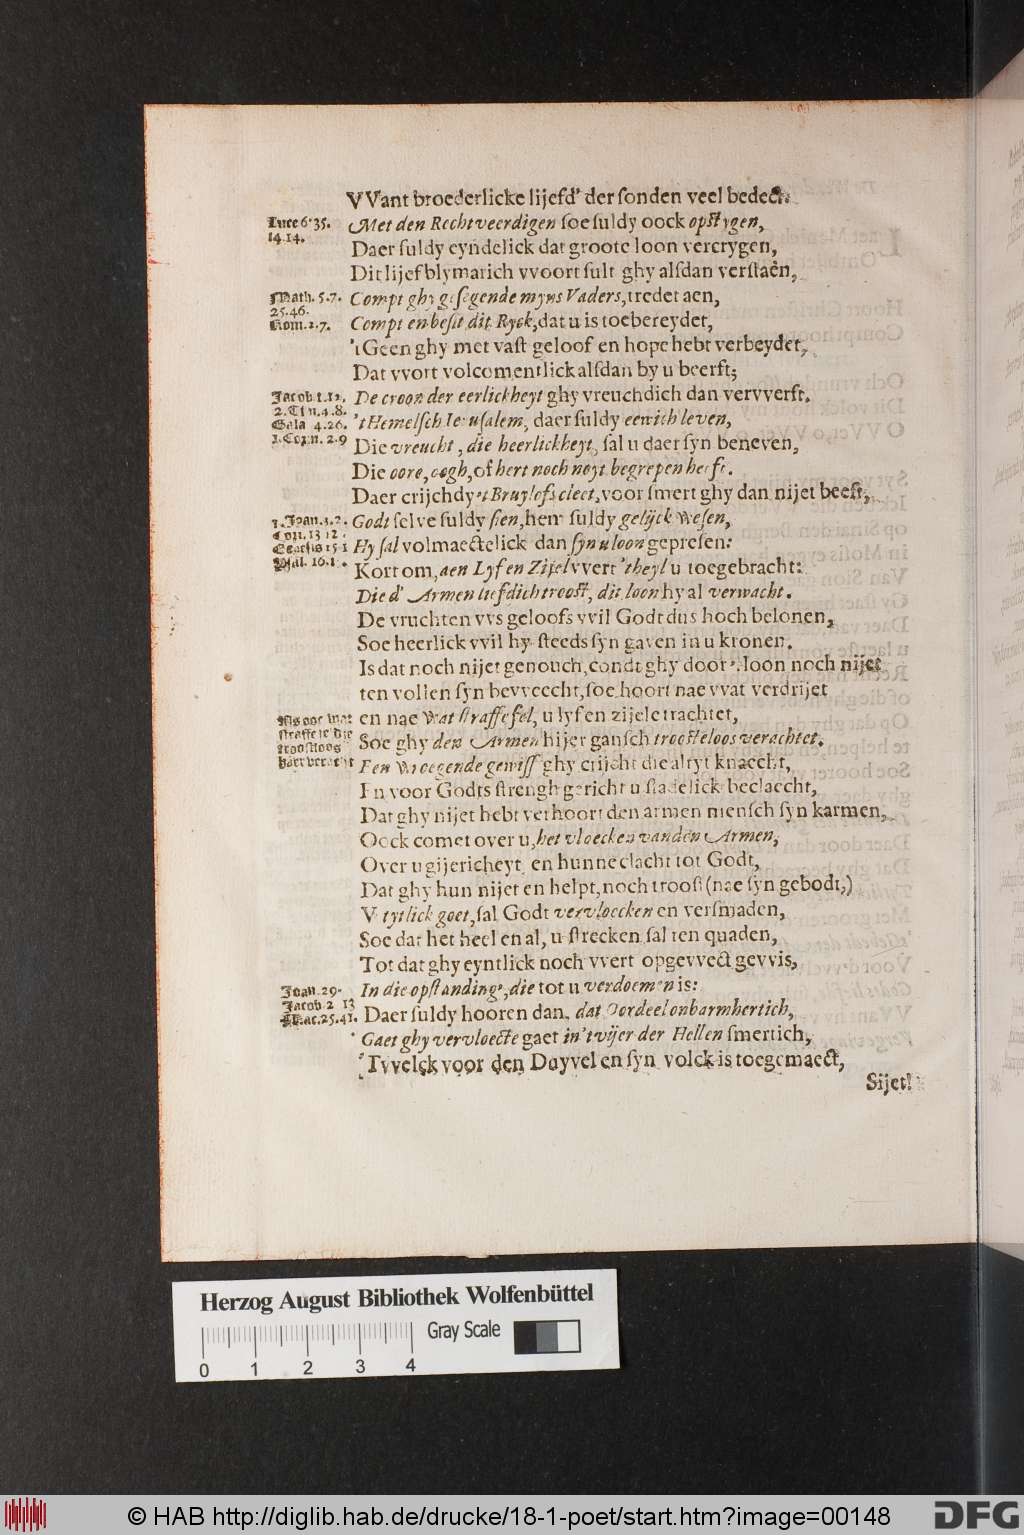 VVant broederlicke lijefd' der sonden veel bedect.
Luce 6.35.
14.14.
Met den Rechtveerdigen soe suldy oock opstygen,
Daer suldy eyndelick dat groote loon vercrygen,
Dit lijefblymarich vvoort sult ghy alsdan verstaen,
Math. 5.7.
25.46.
Rom. 2.7.
Compt ghy gesegende myns Vaders, tredet aen,
Compt en besit dit Ryck, dat u is toebereydet,
't Geen ghy met vast geloof en hope hebt verbeydet,
Dat vvort volcomentlick alsdan by u beerft;
Jacob. 1.12.
2. Tim. 4.8.
Gala 4.26.
1. Corn. 2.9
De croon der eerlickheyt ghy vreuchdich dan vervverft.
't Hemelsch Jerusalem, daer suldy eewich leven,
Die vreucht, die heerlickheyt, sal u daer syn beneven,
Die oore, oogh, of hert noch noyt begrepen heeft.
Daer crijchdy 't Bruylofs cleet, voor smert ghy dan nijet beeft,
1. Joan. 3.2.
Cor. 13 12.
Genesis 15.1
Psal. 16.
Godt selve suldy sien, hem suldy gelijck wesen,
Hy sal volmaectelick dan syn u loon gepresen:
Kortom, aen Lyf en Zijel vvert 't heyl u toegebracht:
Die d' Armen liefdich troost, dit loon hy al verwacht.
De vruchten vvs geloofs vvil Godt dus hoch belonen,
Soe heerlick vvil hy steeds syn gaven in u kronen.
Is dat noch nijet genouch, condt ghy door 't loon noch nijet
ten vollen syn bevveecht, soe hoort nae vvat verdrijet
Als oor wat
straffe je die
troosloos
haer veracht
en nae wat straffe fel, u lyf en zijele trachtet,
Soe ghy den Armen hijer gansch troosteloos verachtet.
Een vroegende gewiss ghy crijcht die altyt knaecht,
En voor Godts strengh gericht u stadelick beclaecht,
Dat ghy nijet hebt verhoort den armen mensch syn karmen,
Oock comet over u, het vloecken van den Armen,
Over u gijericheyt en hunne clacht tot Godt,
Dat ghy hun nijet en helpt, noch troost (nae syn gebodt,)
V tytlick goet, sal Godt vervloecken en versmaden,
Soe dat het heel en al, u strecken sal ten quaden,
Tot dat ghy eyntlick noch vvert opgevvect gevvis,
Joan. 29.
Jacob 2 13
Mat. 25.41.
In die opstanding', die tot u verdoemen is:
Daer suldy hooren dan, dat Oordeel onbarmhertich,
Gaet ghy vervloecte gaet in 't vijer der Hellen smertich,
'Tvvelck voor den Duyvel en syn volck is toegemaect,
Sijet!
Herzog August Bibliothek Wolfenbüttel
Gray Scale
0 1 2 3 4
© HAB http://diglib.hab.de/drucke/18-1-poet/start.htm?image=00148
DFG